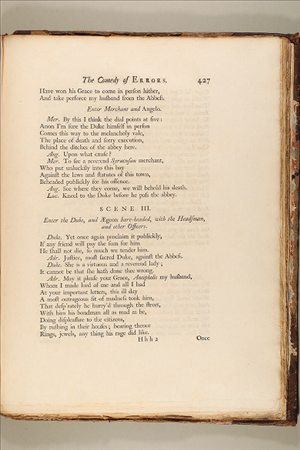 The Comedy of ERRORS. 427
Have won his Grace to come in person hither,
And take perforce my husband from the Abbess.
Enter Merchant and Angelo.
Mer. By this I think the dial points at five:
Anon I'm sure the Duke himself in person
Comes this way to the melancholy vale,
The place of death and sorry execution,
Behind the ditches of the abbey here.
Ang. Upon what cause?
Mer. To see a reverend Syracusan merchant,
Who put unluckily into this bay
Against the laws and statutes of this town,
Beheaded publickly for his offence.
Ang. See where they come, we will behold his death.
Luc. Kneel to the Duke before he pass the abbey.
SCENE III.
Enter the Duke, and Ægeon bare-headed, with the Headsman,
and other Officers.
Duke. Yet once again proclaim it publickly,
If any friend will pay the sum for him
He shall not die, so much we tender him.
Adr. Justice, most sacred Duke, against the Abbess.
Duke. She is a virtuous and a reverend lady;
It cannot be that she hath done thee wrong.
Adr. May it please your Grace, Antipholis my husband,
Whom I made lord of me and all I had
At your important letters, this ill day
A most outragious fit of madness took him,
That desp'rately he hurry'd through the street,
With him his bondman all as mad as he,
Doing displeasure to the citizens,
By rushing in their houses; bearing thence
Rings, jewels, any thing his rage did like.
Hhh2 Once